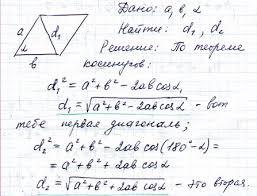 Дано: a, b, α
Найти: d₁, d₂
Решение: По теореме
косинусов:
d₁² = a² + b² - 2ab cos α
d₁ = √a² + b² - 2ab cos α - вот
тебе первая диагональ;
d₂² = a² + b² - 2ab cos (180° - α) =
= a² + b² + 2ab cos α
d₂ = √a² + b² + 2ab cos α - это вторая.
a
d₁
α
b